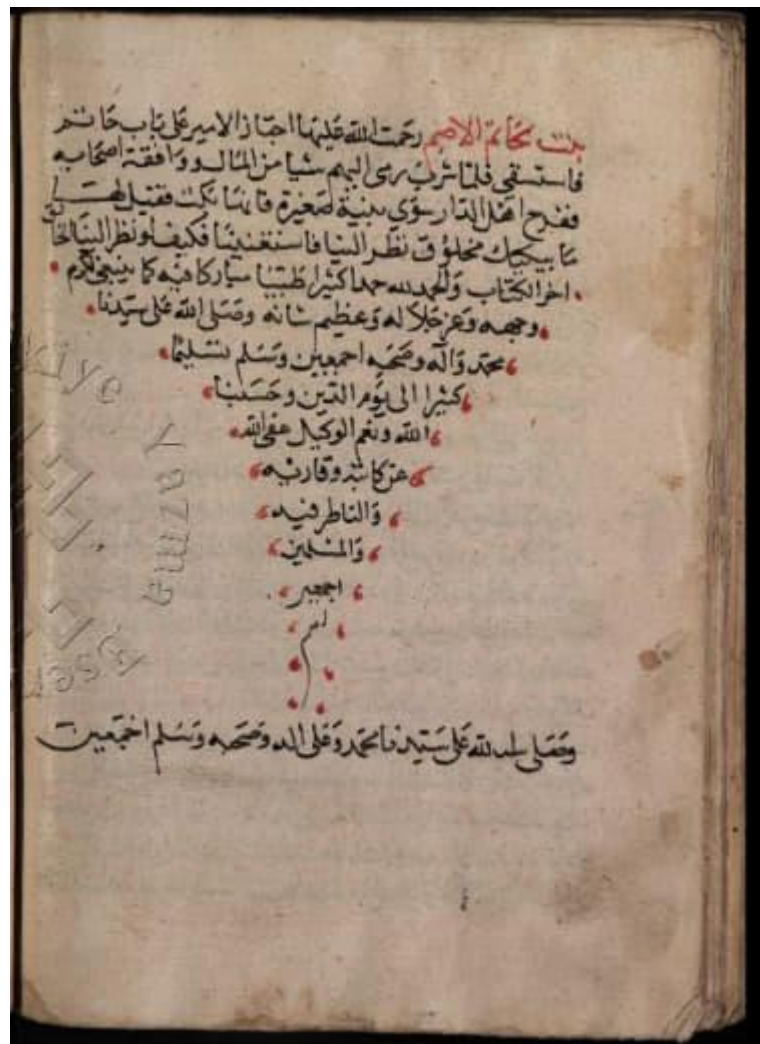 بنت لحاتم الاصم رحمت الله عليهما اجتاز الامير على باب حاتم
فاستسقى فلما شرب رمى اليهم شيا من المال ووافقه اصحابه
ففرح اهل الدار سوي بنية صغيرة فانها بكت فقيل لها
ما يبكيك مخلوق نظر الينا فاستغنينا فكيف لو نظر الينا الخالق
اخر الكتاب والحمد لله حمدا كثيرا طيبا مباركا فيه كما ينبغي لكرم
وجهه وعز جلاله وعظيم شانه وصلى الله على سيدنا
محمد واله وصحبه اجمعين وسلم تسليما
كثيرا الى يوم الدين وحسبنا
الله ونعم الوكيل عفى الله
عن كاتبه وقارئه
والناظر فيه
والمسلمين
اجمعين
تم
وصلى الله على سيدنا محمد وعلى اله وصحبه وسلم اجمعين